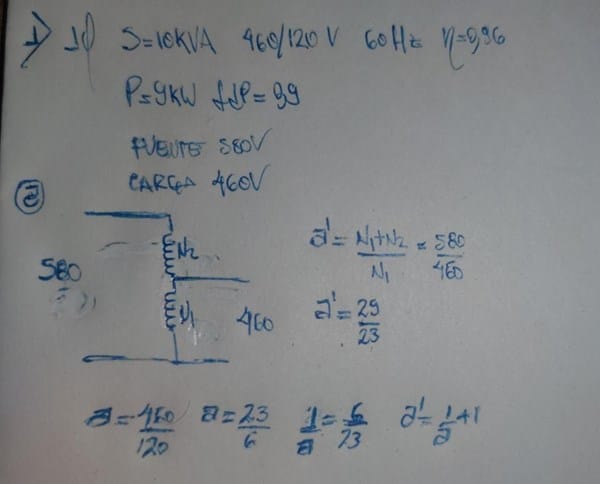 1) 1φ S=10KVA 460/120 V 60Hz η=0,96
P=9KW fdP=0,9
FUENTE 580V
CARGA 460V
a
580
N2
N1
460
a' = N1+N2 / N1 = 580 / 460
a' = 29 / 23
a = 460 / 120 a = 23 / 6 1 / a = 6 / 23 a' = 1 / a + 1